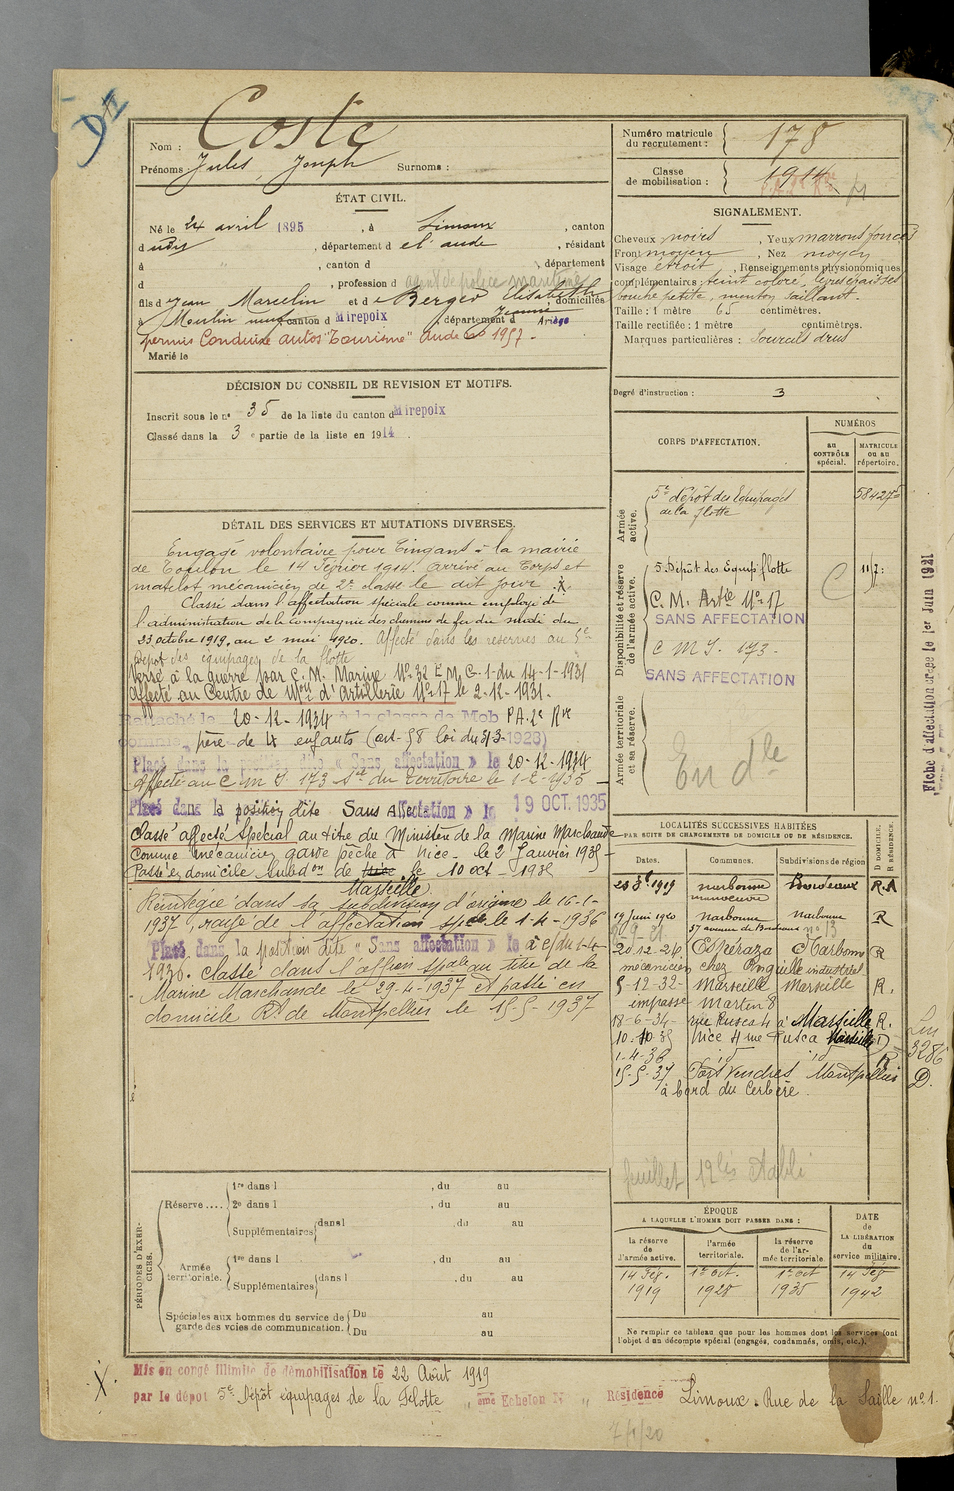 DI
Nom : Coste
Prénoms Jules, Joseph Surnoms :
ÉTAT CIVIL.
Né le 24 avril 1895, à Limoux, canton
dudit, département de l'aude, résidant
à " , canton d , département
d , profession d agent de police maritime
fils d Jean Marcelin et de Berger Elisabeth Jeanne, domiciliés
à Moulin neuf canton d Mirepoix, département d Ariège
permis Conduire autos "Tourisme" Aude 1937.
Marié le
DÉCISION DU CONSEIL DE REVISION ET MOTIFS.
Inscrit sous le n° 35 de la liste du canton d Mirepoix
Classé dans la 3e partie de la liste en 1914.
DÉTAIL DES SERVICES ET MUTATIONS DIVERSES.
Engagé volontaire pour cinq ans à la mairie
de Toulon le 14 Février 1914. Arrivé au Corps et
matelot mécanicien de 2e classe le dit jour. X.
Classé dans l'affectation spéciale comme employé de
l'administration de la Compagnie des chemins de fer du midi du
23 octobre 1919, au 2 mai 1920. Affecté dans les réserves au 5e
Dépôt des équipages de la flotte
Versé à la guerre par C. M. Marine N° 32 E.M.G.-1- du 14-1-1931
affecté au Centre de Mon d'Artillerie N° 17 le 2-12-1931.
Rattaché le 20-12-1934 à la classe de Mob PA. 2e Rve
comme père de 4 enfants (art. 58 loi du 31-3-1928)
Placé dans la position dite « Sans affectation » le 20-12-1934
Affecté au C M I 173 du territoire le 1-2-1935
Placé dans la position dite Sans Affectation » le 19 OCT. 1935
Classé affecté Spécial au titre du Ministère de la Marine Marchande
Comme mécanicien garde pêche à Nice - le 2 Janvier 1935 -
Passé en domicile Subdon de Marseille. le 10 oct - 1935
Réintégré dans sa subdivision d'origine le 16-1-
1937, rayé de l'affectation spéle le 1-4-1936
Placé dans la position dite « Sans affectation » le
1936. Classé dans l'affon spale au titre de la
Marine Marchande le 29-4-1937 et passé en
domicile Rt de Montpellier le 15-5-1937
PÉRIODES D'EXERCICES.
Réserve....
1re dans l , du au
2e dans l , du au
Supplémentaires dans l , du au
Armée territoriale.
1re dans l , du au
Supplémentaires dans l , du au
Spéciales aux hommes du service de garde des voies de communication.
Du au
Du au
Numéro matricule du recrutement : 178
Classe de mobilisation : 1914
SIGNALEMENT.
Cheveux noirs, Yeux marrons foncés
Front moyen, Nez moyen
Visage étroit, Renseignements physionomiques
complémentaires : teint coloré, lèvres épaisses
bouche petite, menton saillant.
Taille : 1 mètre 65 centimètres.
Taille rectifiée : 1 mètre centimètres.
Marques particulières : Sourcils drus
Degré d'instruction : 3
CORPS D'AFFECTATION.
NUMÉROS
au CONTRÔLE spécial.
MATRICULE ou au répertoire.
Armée active.
5e dépôt des Equipages
de la flotte
58427
Disponibilité et réserve de l'armée active.
5e Dépôt des Equip. flotte
C. M. Artie N° 17
SANS AFFECTATION
C M I. 173.
SANS AFFECTATION
Armée territoriale et sa réserve.
En dle
LOCALITÉS SUCCESSIVES HABITÉES
PAR SUITE DE CHANGEMENTS DE DOMICILE OU DE RÉSIDENCE.
D DOMICILE. R RÉSIDENCE.
Dates. Communes. Subdivisions de région
1919 narbonne Bordeaux
manoeuvre
19 juin 1920 Narbonne Narbonne R
37 avenue de Bordeaux n° 13
20-12-24 Espéraza Carbonne R
mécanicien chez industriel
5-12-32 Marseille Marseille R.
impasse Marten 8
18-6-34 rue Rusca 4 à Marseille R.
10-10-35 Nice 4 rue Rusca Marseille D
1-4-36 id id R
15-5-37 Port Vendres Montpellier D.
à bord du Cerbère.
Lm
3286
feuillet 12 bis établi
ÉPOQUE
A LAQUELLE L'HOMME DOIT PASSER DANS :
DATE de LA LIBÉRATION du service militaire.
la réserve de l'armée active.
l'armée territoriale.
la réserve de l'armée territoriale
14 Fév. 1919
1er oct. 1928
1er oct 1935
14 Fév 1942
Ne remplir ce tableau que pour les hommes dont les services font
l'objet d'un décompte spécial (engagés, condamnés, omis, etc.).
Fiche d'affectation créée le 1er Juin 1921
X.
Mis en congé illimité de démobilisation le 22 Août 1919
par le dépot 5e Dépôt équipages de la Flotte " ème Echelon N " Résidence Limoux. Rue de la Saille n° 1.
7/1/20